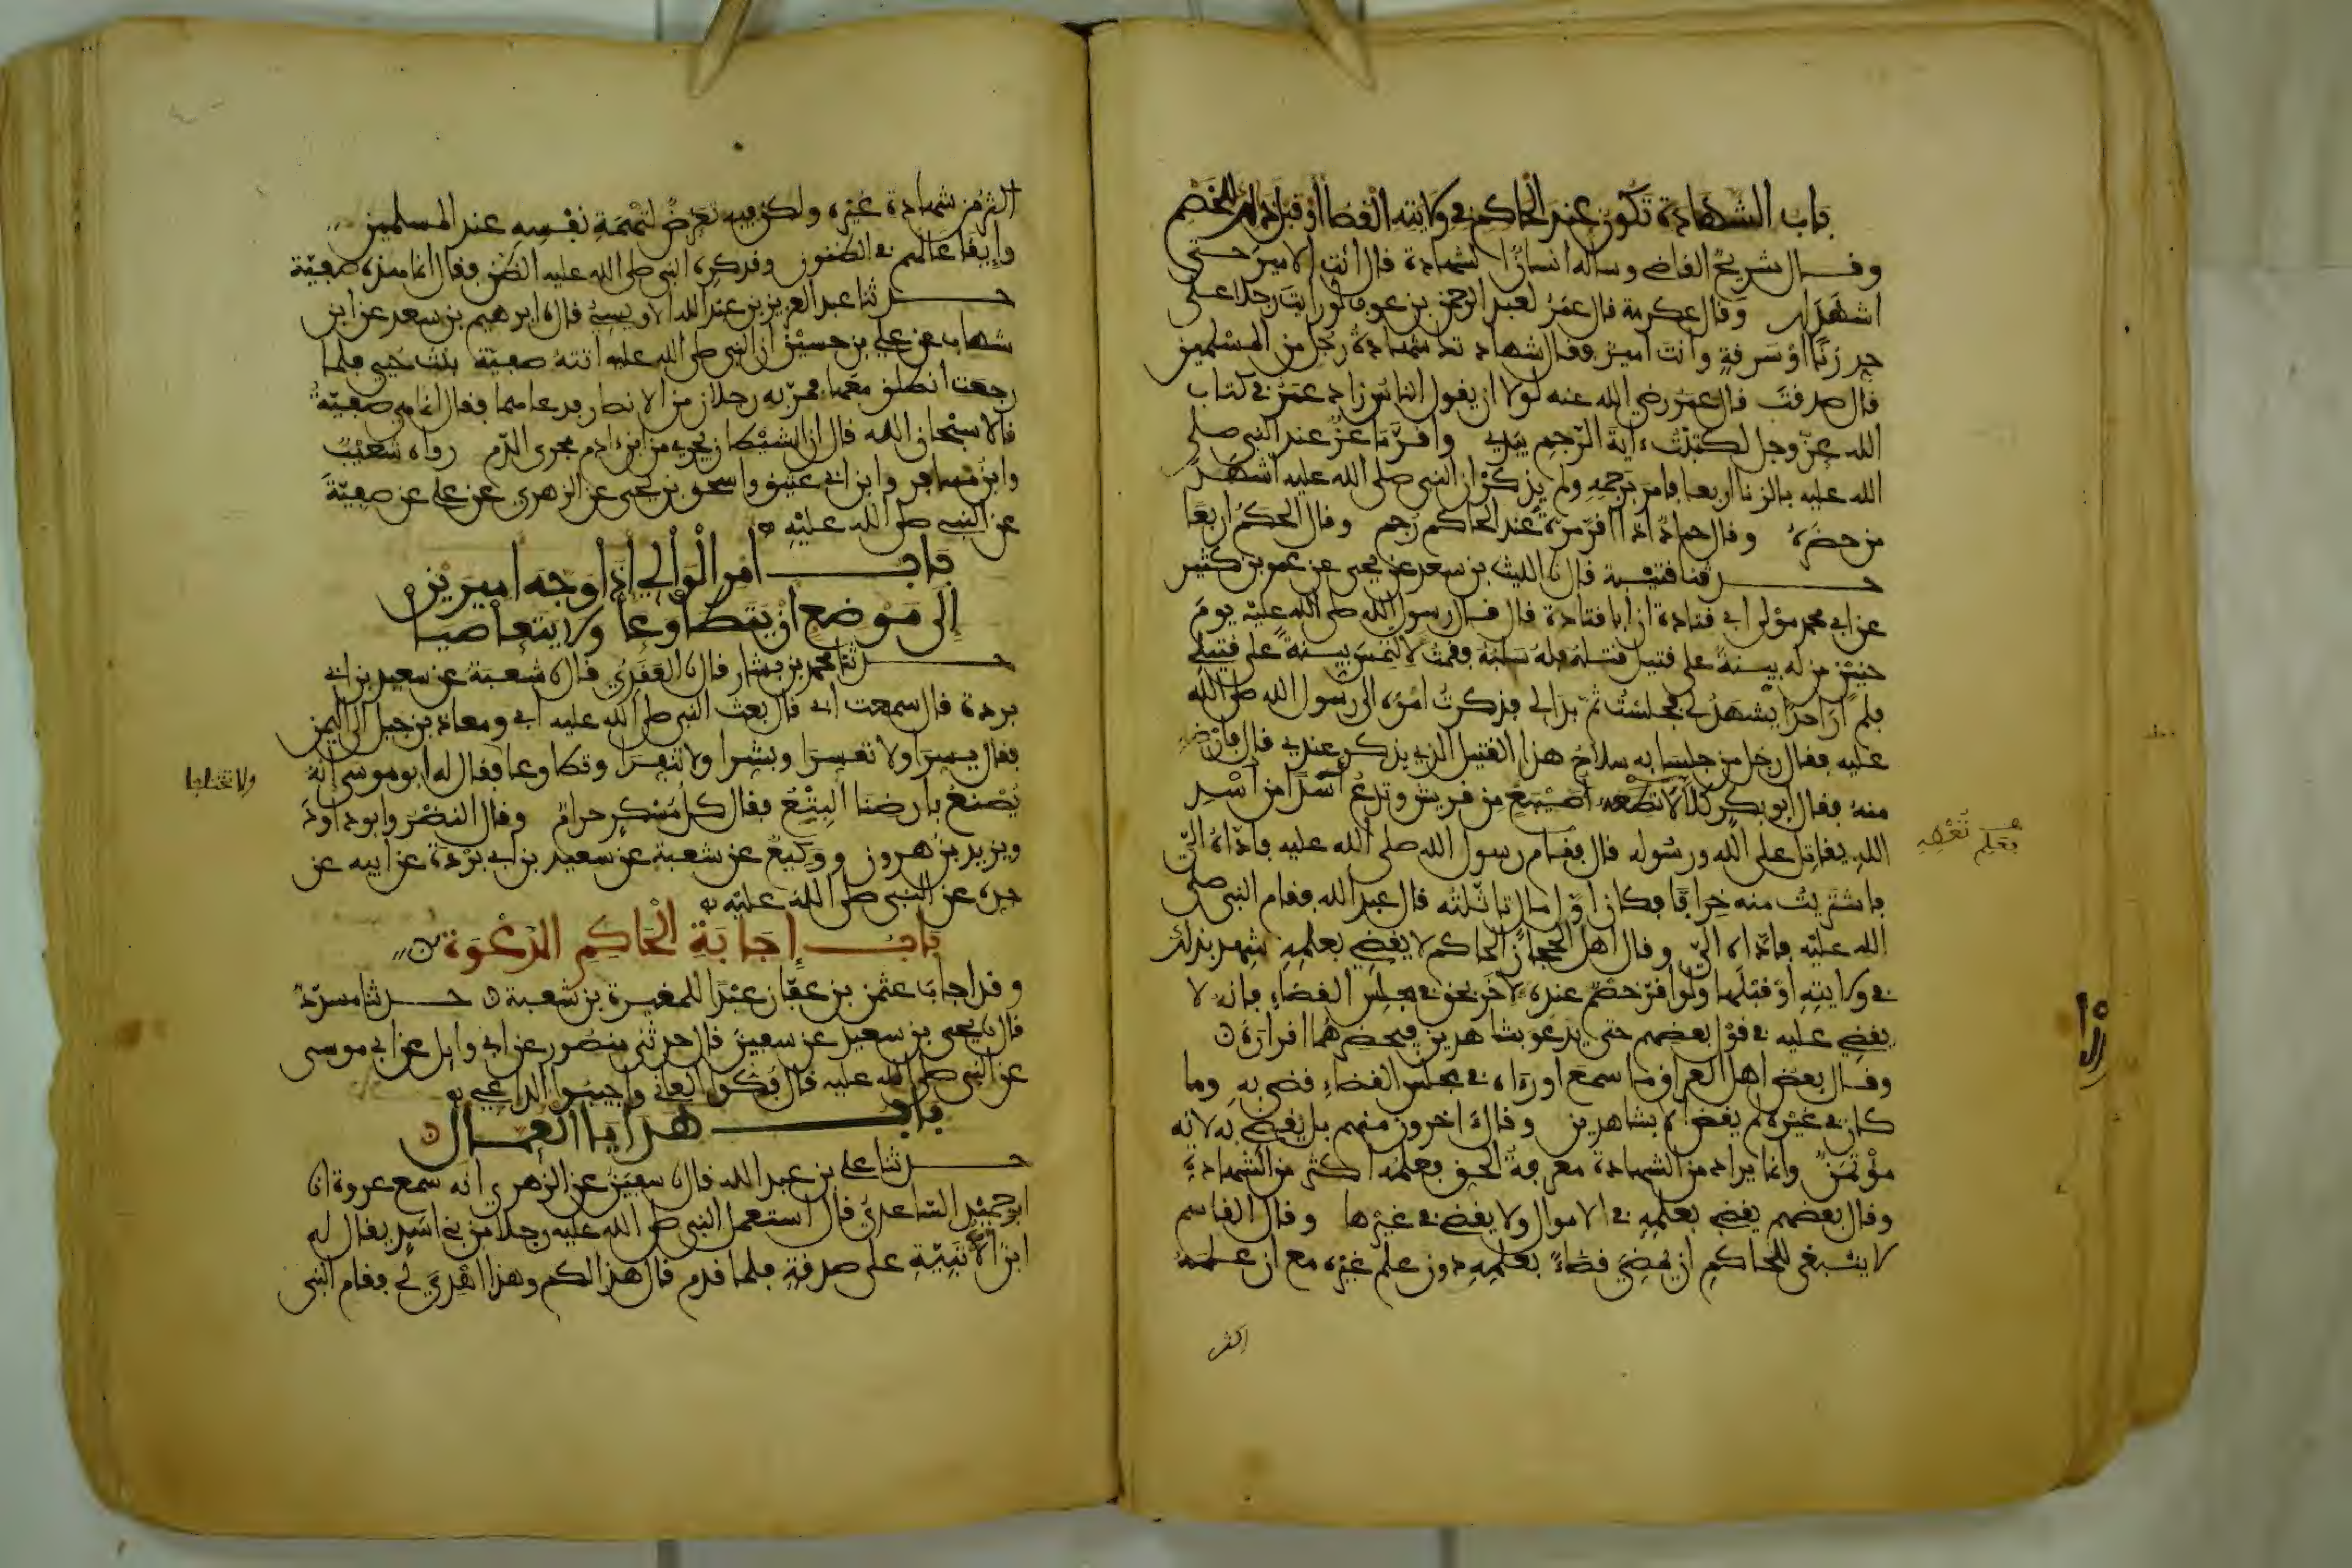 باب الشهادة تكون عند الحاكم في ولايته القضا أو قبل ذلك للخصم
وقال شريح القاضي وساله انسان الشهادة قال ائت الامير حتى
اشهد لك وقال عكرمة قال عمر لعبد الرحمن بن عوف لو رايت رجلا على
حد زنا أو سرقة وانت امير فقال شهادتك شهادة رجل من المسلمين
قال صدقت قال عمر رضي الله عنه لولا ان يقول الناس زاد عمر في كتاب
الله عز وجل لكتبت ءاية الرجم بيدي واقر ماعز عند النبي صلى
الله عليه بالزنا اربعا فامر برجمه ولم يذكر ان النبي صلى الله عليه اشهد
من حضره وقال حماد اذا اقر مرة عند الحاكم رجم وقال الحكم اربعا
حدثنا قتيبة قال نا الليث بن سعد عن يحيى عن عمر بن كثير
عن ابي محمد مولى ابي قتادة ان ابا قتادة قال قال رسول الله صلى الله عليه يوم
حنين من له بينة على قتيل قتله فله سلبه فقمت لالتمس بينة على قتيلي
فلم ار احدا يشهد لي فجلست ثم بدا لي فذكرت امره الى رسول الله صلى الله
عليه فقال رجل من جلسايه سلاح هذا القتيل الذي يذكر عندي قال فارضه
منه فقال ابو بكر كلا لا تعطه أصيبغ من قريش وتدع أسدا من أسد
الله يقاتل على الله ورسوله قال فقام رسول الله صلى الله عليه فاداه الي
فاشتريت منه خرافا فكان اول مال تاثلته قال عبد الله فقام النبي صلى
الله عليه فاداه الي وقال اهل الحجاز الحاكم لا يقضي بعلمه شهد بذلك
في ولايته أو قبلها ولو اقر خصم عنده لاخر بحق في مجلس القضاء فانه لا
يقضي عليه في قول بعضهم حتى يدعو بشاهدين فيحضرهما اقراره
وقال بعض اهل العراق ما سمع او رءاه في مجلس القضاء قضى به وما
كان في غيره لم يقض الا بشاهدين وقال اخرون منهم بل يقضي به لانه
مؤتمن وانما يراد من الشهادة معرفة الحق فعلمه اكثر من الشهادة
وقال بعضهم يقضي بعلمه في الاموال ولا يقضي في غيرها وقال القاسم
لا ينبغي للحاكم ان يمضي قضاء بعلمه دون علم غيره مع ان علمه
اكثر
اكثر من شهادة غيره ولكن فيه تعرض لتهمة نفسه عند المسلمين
وإيقاعا لهم في الظنون وقد كره النبي صلى الله عليه الظن فقال انما هذه صفية
حدثنا عبد العزيز بن عبد الله الاويسي قال نا ابرهيم بن سعد عن ابن
شهاب عن علي بن حسين ان النبي صلى الله عليه اتته صفية بنت حيي فلما
رجعت انطلق معها فمر به رجلان من الانصار فدعاهما فقال انما هي صفية
قالا سبحان الله قال ان الشيطان يجري من ابن ءادم مجرى الدم رواه شعيب
وابن مسافر وابن ابي عتيق واسحق بن يحيى عن الزهري عن علي عن صفية
عن النبي صلى الله عليه
باب أمر الوالي إذا وجه اميرين
إلى موضع أن يتطاوعا ولا يتعاصيا
حدثنا محمد بن بشار قال نا العقدي قال نا شعبة عن سعيد بن ابي
بردة قال سمعت ابي قال بعث النبي صلى الله عليه ابي ومعاذ بن جبل الى اليمن
فقال يسرا ولا تعسرا وبشرا ولا تنفرا وتطاوعا فقال له ابو موسى انه
ولا تختلفا
يصنع بارضنا البتع فقال كل مسكر حرام وقال النضر وابو داود
ويزيد بن هرون ووكيع عن شعبة عن سعيد بن ابي بردة عن ابيه عن
جده عن النبي صلى الله عليه
باب إجابة الحاكم الدعوة
وقد اجاب عثمن بن عفان عبدا للمغيرة بن شعبة حدثنا مسدد
قال نا يحيى بن سعيد عن سفين قال حدثني منصور عن ابي وايل عن ابي موسى
عن النبي صلى الله عليه قال فكوا العاني واجيبوا الداعي
باب هدايا العمال
حدثنا علي بن عبد الله قال نا سفين عن الزهري انه سمع عروة انا
ابو حميد الساعدي قال استعمل النبي صلى الله عليه رجلا من بني اسد يقال له
ابن الاتبية على صدقة فلما قدم قال هذا لكم وهذا اهدي لي فقام النبي